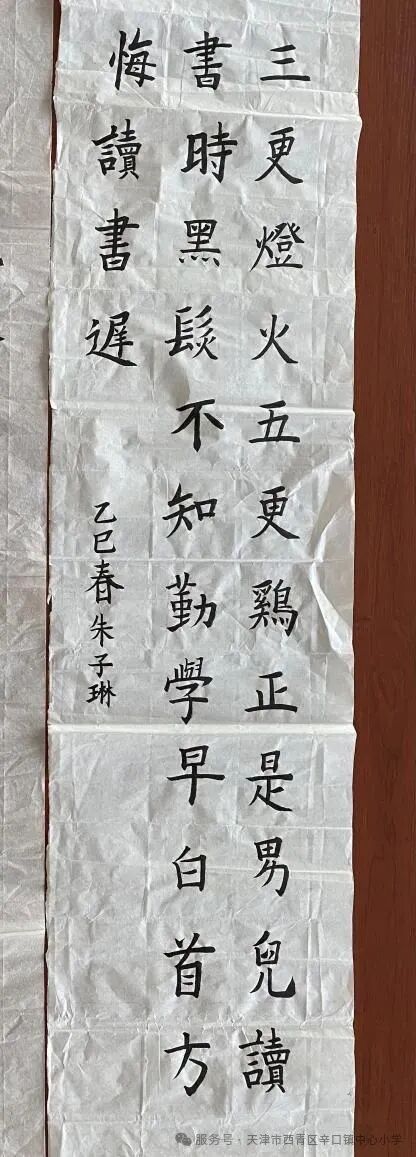 三更燈火五更鷄正是男兒讀
書時黑髮不知勤學早白首方
悔讀書遲
乙巳春朱子琳
服务号·天津市西青区辛口镇中心小学